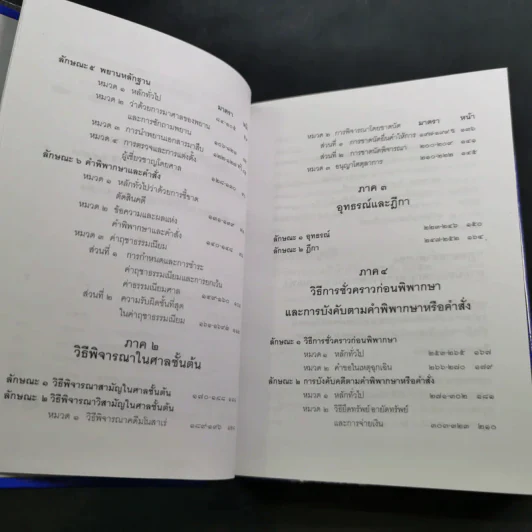 ลักษณะ ๕ พยานหลักฐาน
มาตรา
หมวด ๑ หลักทั่วไป
หมวด ๒ ว่าด้วยการมาศาลของพยาน
และการซักถามพยาน
หมวด ๓ การนำพยานเอกสารมาสืบ
หมวด ๔ การตรวจและการแต่งตั้ง
ผู้เชี่ยวชาญโดยศาล
ลักษณะ ๖ คำพิพากษาและคำสั่ง
หมวด ๑ หลักทั่วไปว่าด้วยการชี้ขาด
ตัดสินคดี
หมวด ๒ ข้อความและผลแห่ง
คำพิพากษาและคำสั่ง
หมวด ๓ ค่าฤชาธรรมเนียม
ส่วนที่ ๑ การกำหนดและการชำระ
ค่าฤชาธรรมเนียมและการยกเว้น
ค่าธรรมเนียมศาล
ส่วนที่ ๒ ความรับผิดชั้นที่สุด
ในค่าฤชาธรรมเนียม
ภาค ๒
วิธีพิจารณาในศาลชั้นต้น
ลักษณะ ๑ วิธีพิจารณาสามัญในศาลชั้นต้น ๑๗๐-๑๘๘
ลักษณะ ๒ วิธีพิจารณาวิสามัญในศาลชั้นต้น
หมวด ๑ วิธีพิจารณาคดีมโนสาเร่ ๑๘๙-๑๙๖
มาตรา หน้า
หมวด ๒ การพิจารณาโดยขาดนัด
ส่วนที่ ๑ การขาดนัดยื่นคำให้การ
ส่วนที่ ๒ การขาดนัดพิจารณา ๒๐๐-๒๐๙ ๑๔๔
หมวด ๓ อนุญาโตตุลาการ ๒๑๐-๒๒๒ ๑๔๕
ภาค ๓
อุทธรณ์และฎีกา
ลักษณะ ๑ อุทธรณ์ ๒๒๓-๒๔๖ ๑๕๐
ลักษณะ ๒ ฎีกา ๒๔๗-๒๕๒ ๑๖๔
ภาค ๔
วิธีการชั่วคราวก่อนพิพากษา
และการบังคับตามคำพิพากษาหรือคำสั่ง
ลักษณะ ๑ วิธีการชั่วคราวก่อนพิพากษา
หมวด ๑ หลักทั่วไป ๒๕๓-๒๖๕ ๑๖๗
หมวด ๒ คำขอในเหตุฉุกเฉิน ๒๖๖-๒๗๐ ๑๗๙
ลักษณะ ๒ การบังคับคดีตามคำพิพากษาหรือคำสั่ง
หมวด ๑ หลักทั่วไป ๒๗๑-๓๐๒ ๑๘๑
หมวด ๒ วิธียึดทรัพย์ อายัดทรัพย์
และการจ่ายเงิน ๓๐๓-๓๒๓ ๒๑๐